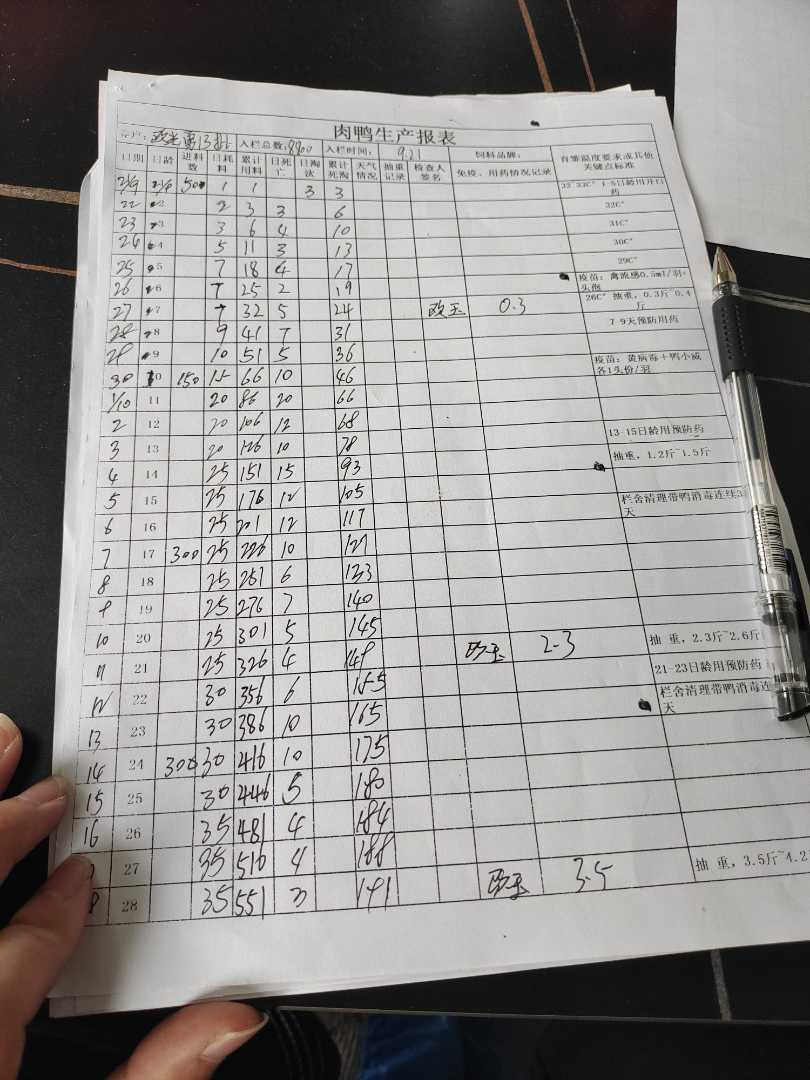 肉鸭生产报表
入栏总数:8800 入栏时间: 9.21 饲料品牌: 育雏温度要求或其他关键点标准
日期 日龄 进料数 日耗料 累计用料 日死亡 日淘汰 累计死淘 天气情况 抽重记录 检查人签名 免疫、用药情况记录
500 1 1 3 3 32-33C° 1-5日龄用开口药
22 2 2 3 3 6 32C°
23 3 3 6 4 10 31C°
24 4 5 11 3 13 30C°
25 5 7 18 4 17 29C°
26 6 7 25 2 19 疫苗:禽流感0.5ml/羽+头孢
27 7 7 32 5 24 0.3 26C° 抽重,0.3斤~0.4斤
28 8 9 41 7 31 7-9天预防用药
29 9 10 51 5 36 疫苗:黄病毒+鸭小减各1头份/羽
30 10 150 15 66 10 46
1/10 11 20 86 20 66
2 12 20 106 12 68
3 13 20 126 10 78 13-15日龄用预防药
4 14 25 151 15 93 抽重,1.2斤~1.5斤
5 15 25 176 12 105 栏舍清理带鸭消毒连续3天
6 16 25 201 12 117
7 17 300 25 226 10 127
8 18 25 251 6 133
9 19 25 276 7 140
10 20 25 301 5 145 2-3 抽 重,2.3斤~2.6斤
11 21 25 326 4 149 21-23日龄用预防药
12 22 30 356 6 155 栏舍清理带鸭消毒连天
13 23 30 386 10 165
14 24 300 30 416 10 175
15 25 30 446 5 180
16 26 35 481 4 184
27 35 516 4 188
8 28 35 551 3 191 3.5 抽 重,3.5斤~4.2